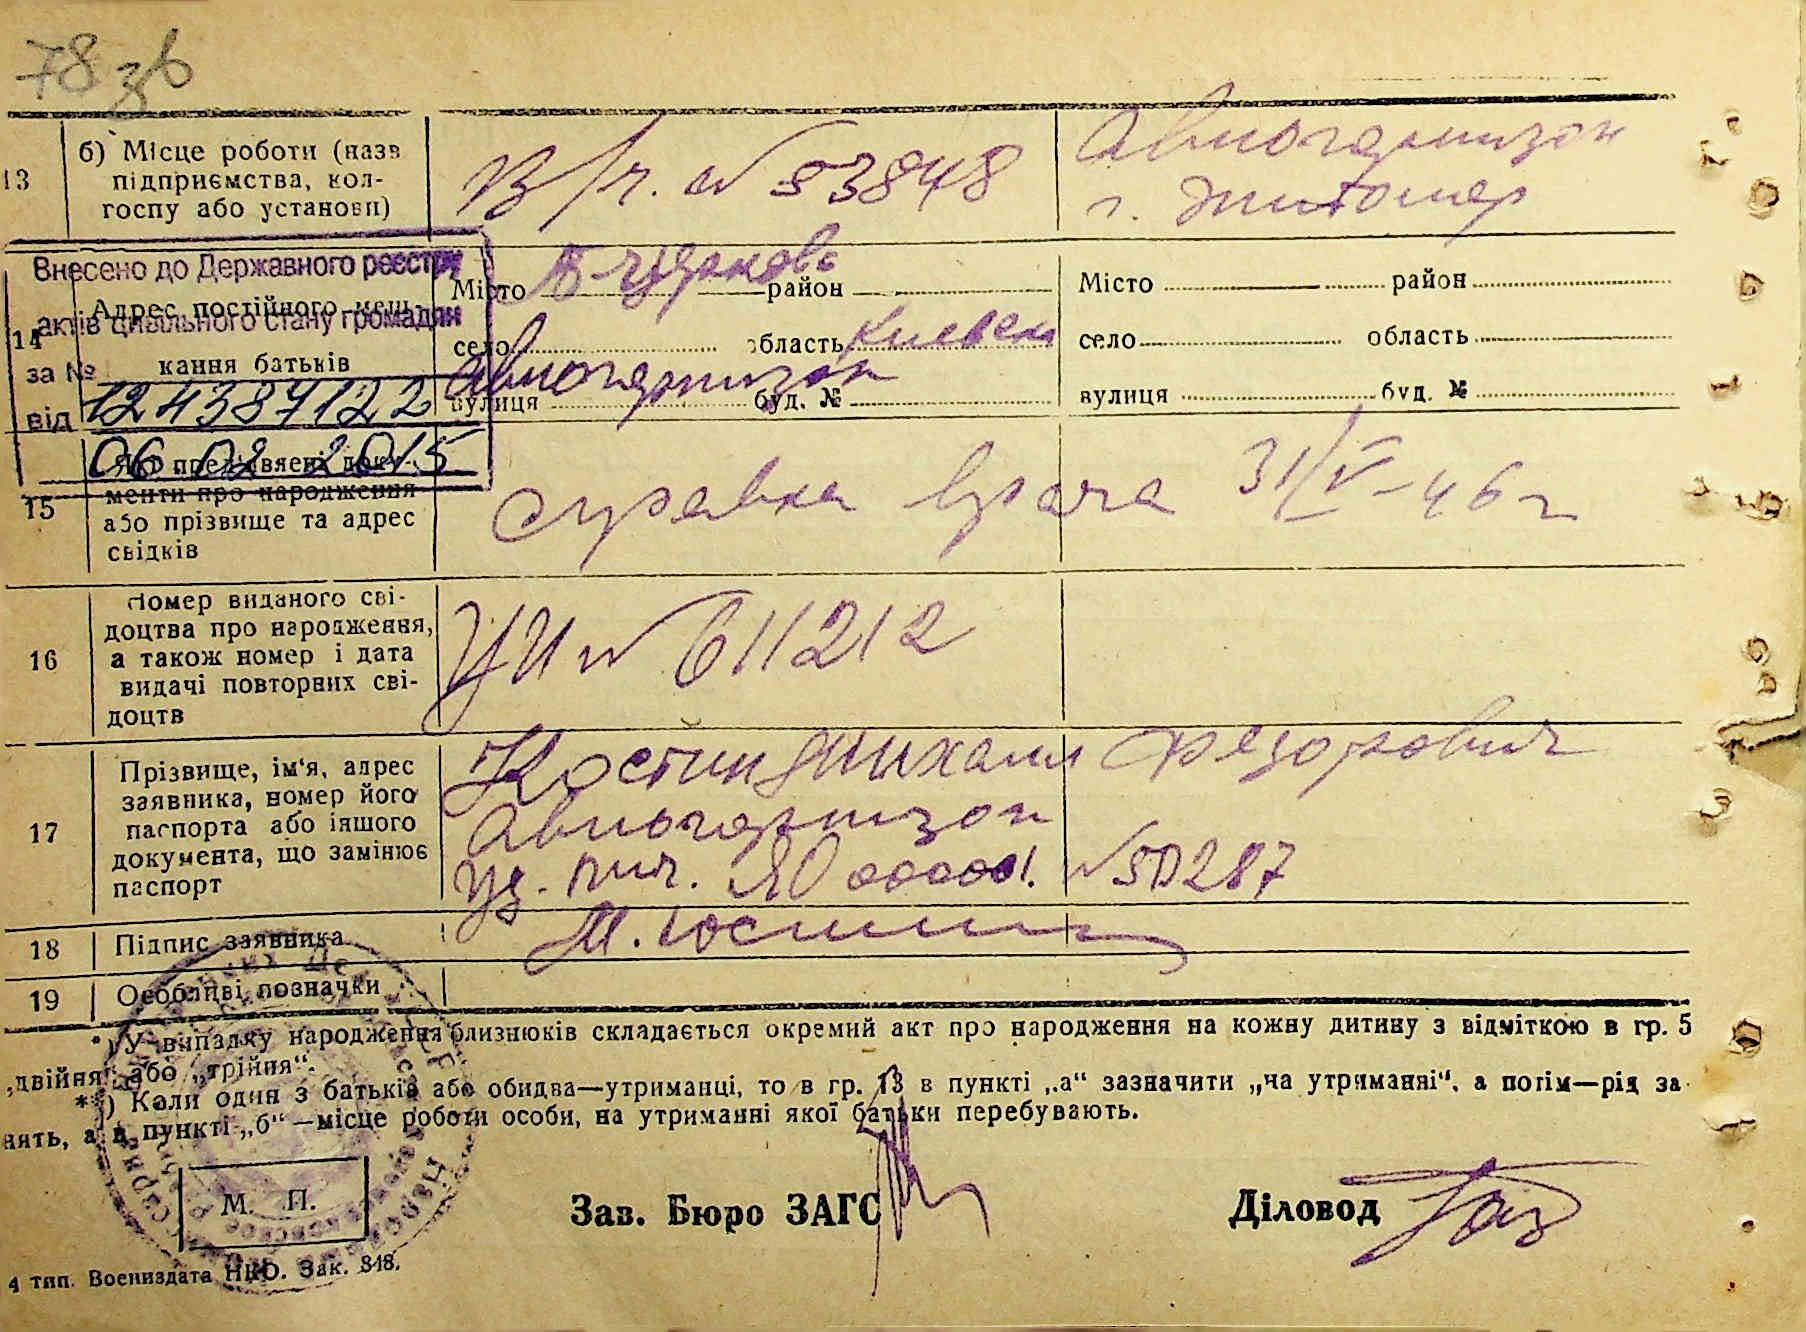 78 зв
13
б) Місце роботи (назв
підприємства, кол-
госпу або установи)
В/ч. № 53848
Авиогарнизон
г. Житомир
Внесено до Державного реєстру
актів цивільного стану громадян
за № 124387122
від 06 02 2015
14
Адрес постійного меш-
кання батьків
Місто Б-Церковь район
село область Киевск
Авиогарнизон
вулиця буд. №
Місто район
село область
вулиця буд. №
15
Які пред'явлені доку-
менти про народження
або прізвище та адрес
свідків
Справка врача 31/V-46 г
16
Номер виданого сві-
доцтва про народження,
а також номер і дата
видачі повторних сві-
доцтв
№ 611212
17
Прізвище, ім'я, адрес
заявника, номер його
паспорта або іншого
документа, що замінює
паспорт
Костин Михаил Федорович
Авиогарнизон
уд. лич. №50287
18
Підпис заявника
М. Костин
19
Особливі позначки
*) У випадку народження близнюків складається окремий акт про народження на кожну дитину з відміткою в гр. 5
„двійня“ або „трійня“.
**) Коли один з батьків або обидва—утриманці, то в гр. 13 в пункті „а“ зазначити „на утриманні“, а потім—рід за
нять, а в пункті „б“—місце роботи особи, на утриманні якої батьки перебувають.
М. П.
Зав. Бюро ЗАГС
Діловод
4 тип. Воениздата НКО. Зак. 818.